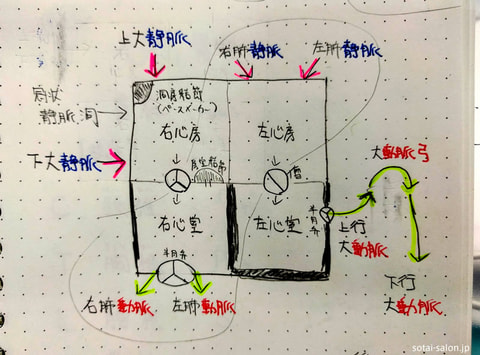 上大静脈
右肺静脈
左肺静脈
洞房結節
(ペースメーカー)
冠状
静脈洞
右心房
左心房
大動脈弓
房室結節
僧
下大静脈
右心室
左心室
半月弁
半月弁
上行
大動脈
下行
大動脈
右肺動脈
左肺動脈
sotai-salon.jp